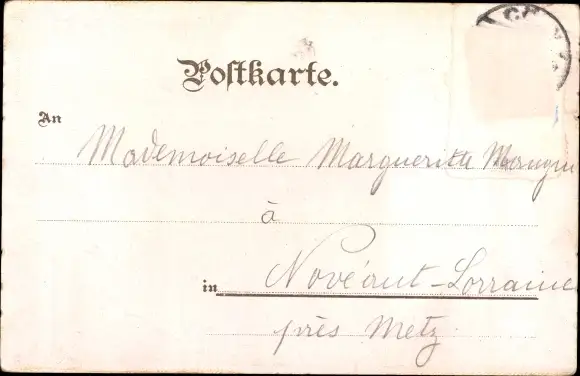 Postkarte.
An
Mademoiselle Marguerite
à
in Novéant-Lorraine
près Metz